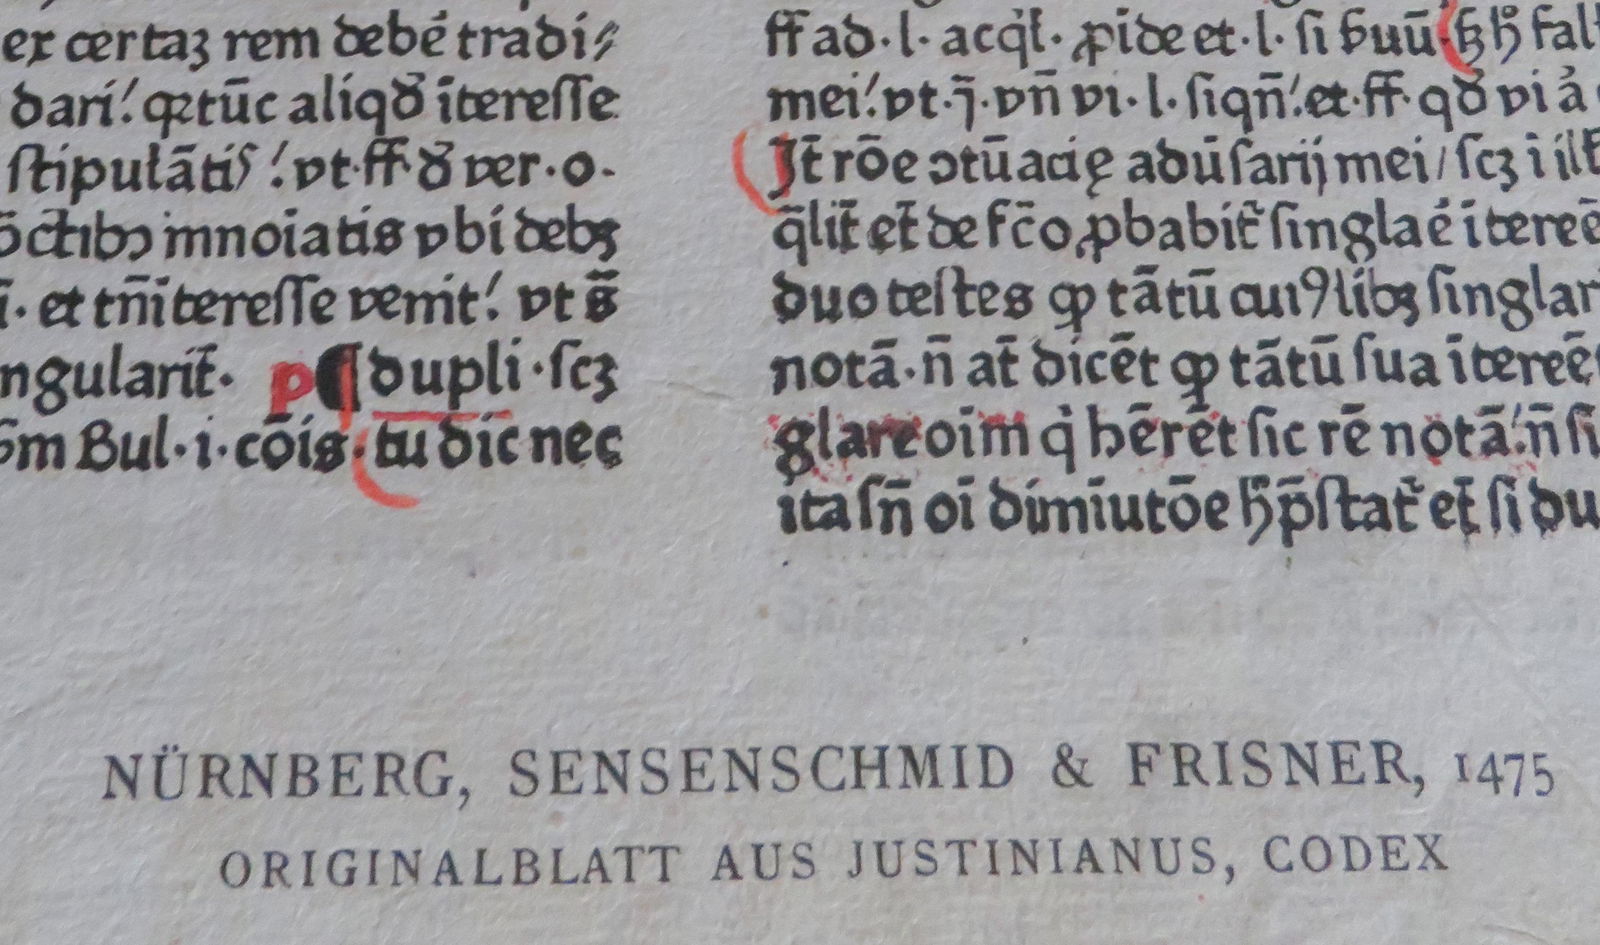 ex certaꝫ rem debē tradi⸗
dari! qꝛ tūc aliqď ītereſſe
ſtipulātis! vt.ff.ď ver.o.
mnoiatis vbi debꝫ
et tn̄ itereſſe venit! vt s̄
ngularit̄. p ¶ dupli.ſcꝫ
Bul.i.cōis. tu dic nec
ff ad.l. acq̇l. ꝓide et.l. ſi ẜuū.
mei! vt.j̄.vn̄ vi.l.ſiqn̄! et.ff. qď vi
Jt̄ rōe ↄtūacię adūſarij mei/ſcꝫ i
q̄lit̄ et̄ de fc̄o ꝓbabit̄ ſinglaē itereē
duo teſtes ꝙ tātū cuiꝰlibꝫ ſinglar
notā.n̄ at̄ dicēt ꝙ tātū ſua itereē
glare oīm q̇ hērēt ſic rē notā! n̄ ſi
ita ſn̄ oī dimīutōe p̄ſtat̄ et̄ ſi du
NÜRNBERG, SENSENSCHMID & FRISNER, 1475
ORIGINALBLATT AUS JUSTINIANUS, CODEX